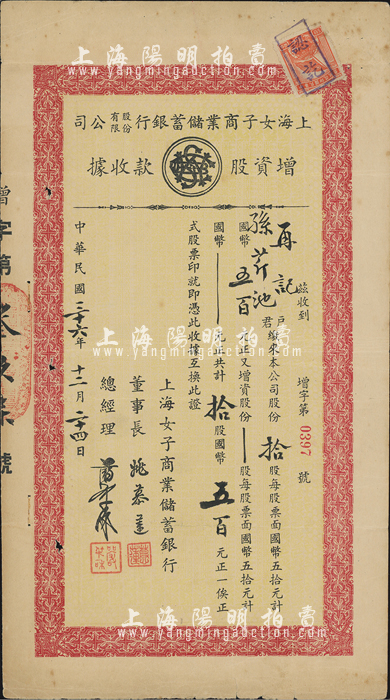 上海陽明拍賣
www.yangmingauction.com
上海女子商業儲蓄銀行股份有限公司
增資股款收據
茲收到 增字第 0397 號
再記
孫芹池
戶君繳來本公司股份 拾 股每股票面國幣五拾元計
國幣 五百 元正又增資股份 — 股每股票面國幣五拾元計
國幣 — 元正共計 拾 股國幣 五百 元正一俟正
式股票印就即憑此收據互換此證
上海女子商業儲蓄銀行
董事長 姚慕蓮
總經理
中華民國 三十六年 十二月 二十四日
增字第
號
上海陽明拍賣
www.yangmingauction.com
上海陽明拍賣
www.yangmingauction.com